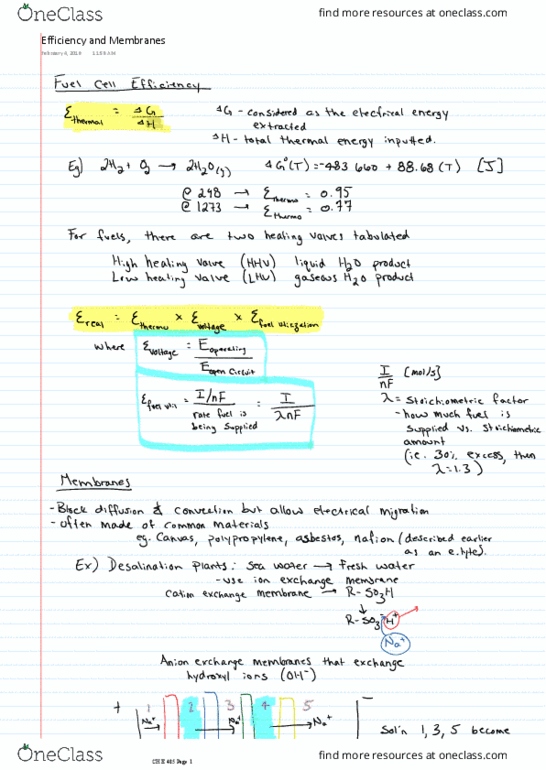 OneClass
find more resources at oneclass.com
Efficiency and Membranes
February 4, 2016 11:59 AM
Fuel Cell Efficiency
Ɛthermal = ΔG/ΔH
ΔG - considered as the electrical energy extracted
ΔH - total thermal energy inputted.
Eg) 2H2 + O2 → 2H2O(g) ΔG°(T) = -483 660 + 88.68 (T) [J]
@ 298 → Ɛthermo = 0.95
@ 1273 → Ɛthermo = 0.77
For fuels, there are two healing valves tabulated
High healing valve (HHV) liquid H2O product
Low healing valve (LHV) gaseous H2O product
Ɛreal = Ɛthermo × Ɛvoltage × Ɛfuel utilization
where Ɛvoltage = Eoperating / Eopen circuit
Ɛfuel util = I/nF / rate fuel is being supplied = I / λnF
I/nF [mol/s]
λ = stoichiometric factor
- how much fuel is
supplied vs. stoichiometric
amount
(i.e. 30% excess, then
λ=1.3)
Membranes
- Block diffusion & convection but allow electrical migration
- often made of common materials
eg. Canvas, polypropylene, asbestos, nafion (described earlier
as an e.lyte).
Ex) Desalination plants: sea water → fresh water
- use ion exchange membrane
cation exchange membrane → R-SO3H
↓
R-SO3⁻ H⁺
Na⁺
Anion exchange membranes that exchange
hydroxyl ions (OH⁻)
+ 1 2 3 4 5 -
Na⁺ → Na⁺ → Na⁺
Sol'n 1, 3, 5 become
OneClass
CHE 405 Page 1
find more resources at oneclass.com